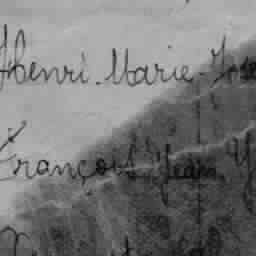 Henri-Marie-Jose
François Jean Y